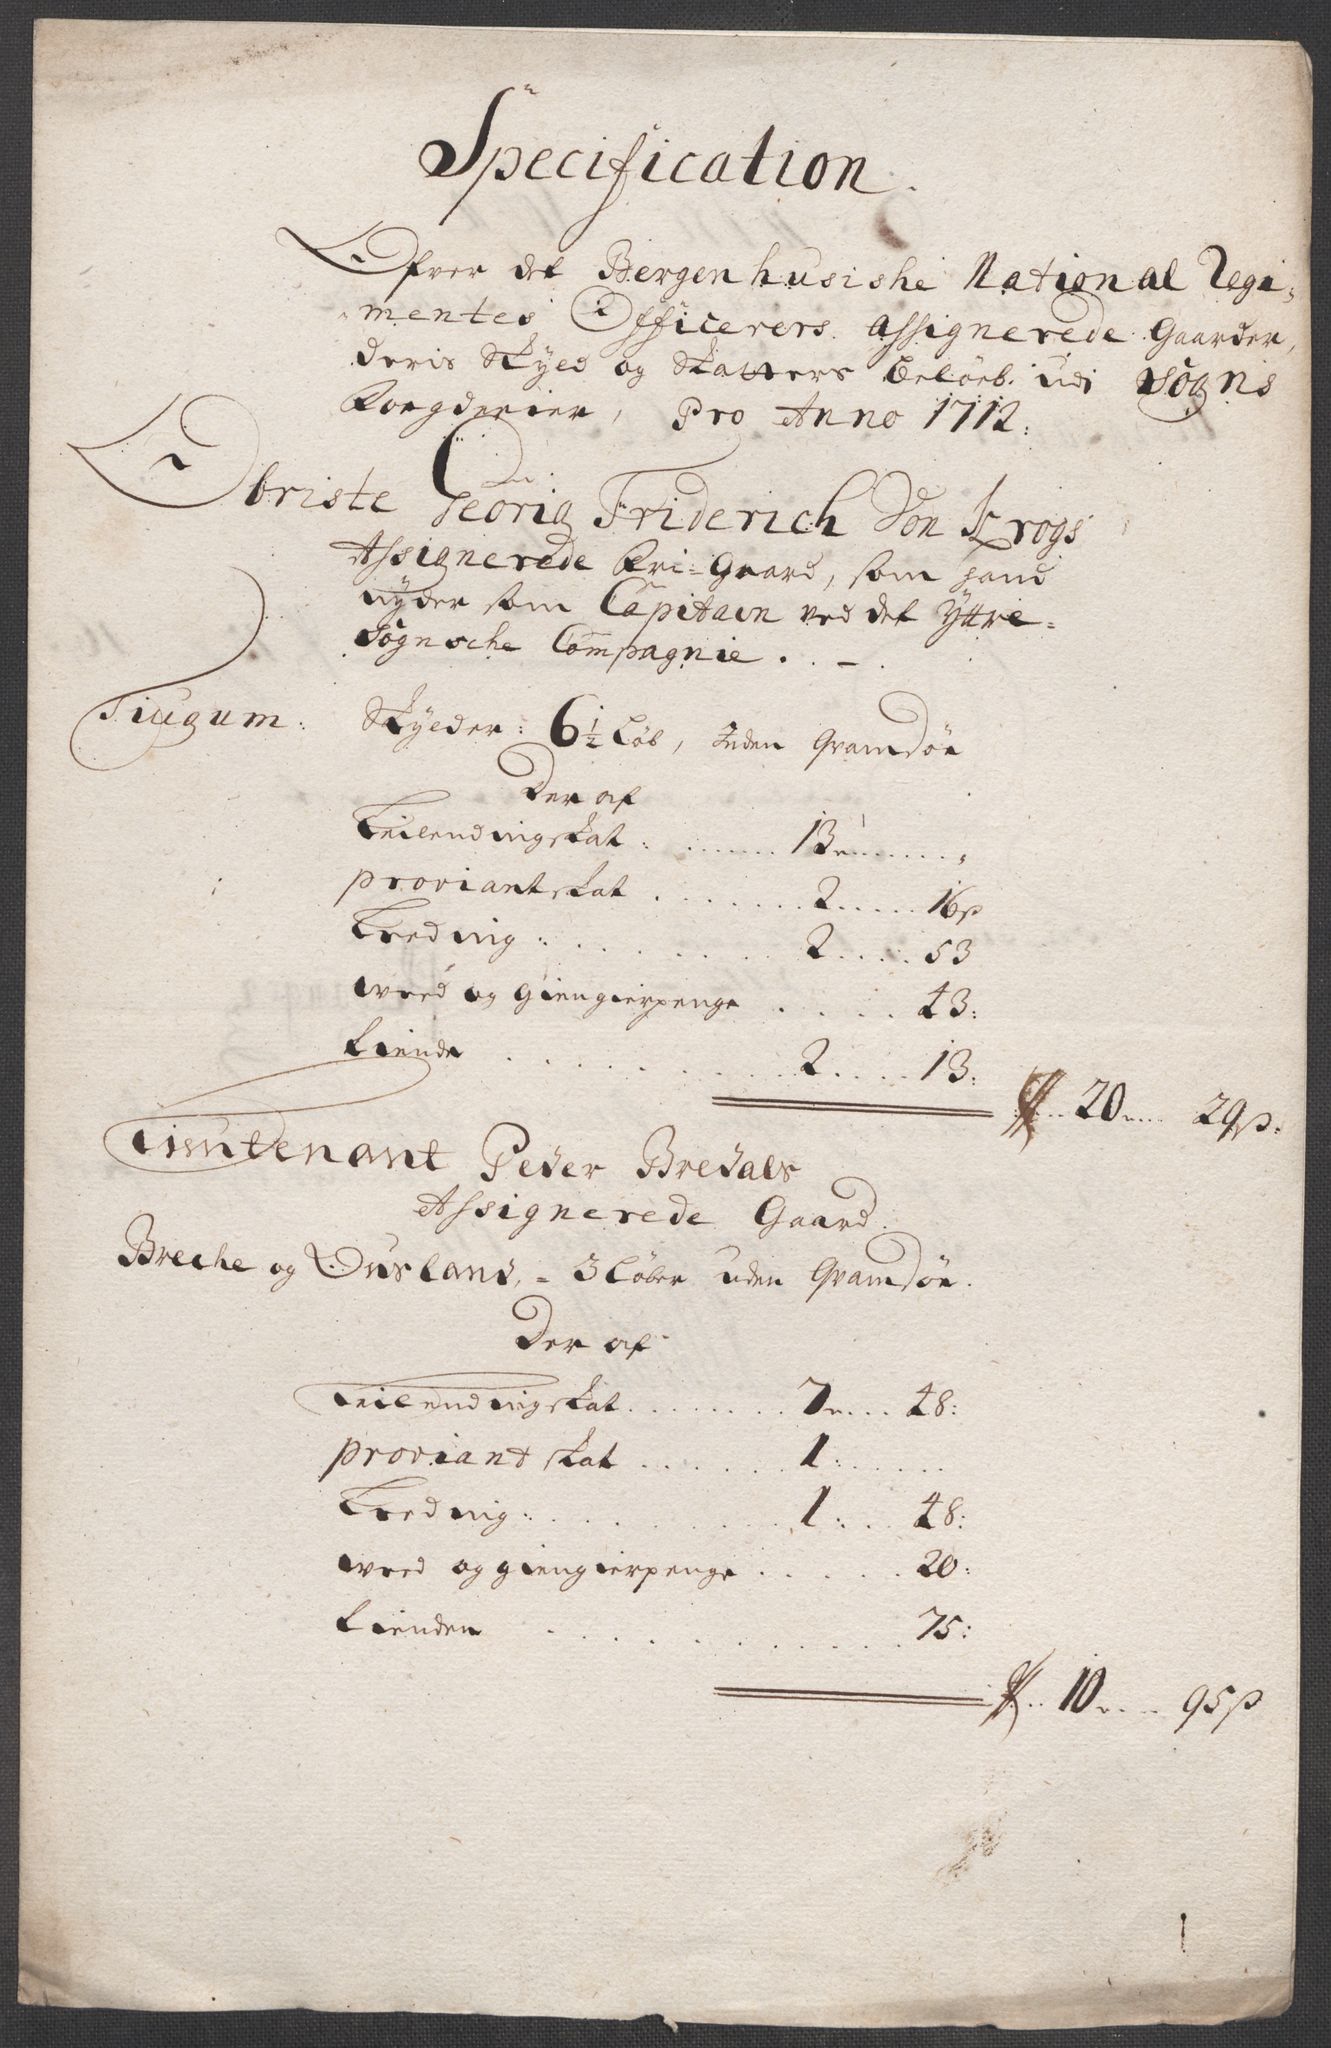 Specification.
Ofver det Bergenhusishe National Regi-
mentes Officerers assignerede Gaarder,
deris Skyld og Skatters beløeb. udi Sogns
Fogderier, Pro Anno 1712:
Obriste Georig Friderich Von Krogs
Assignerede Fri-Gaard, som hand
nyder som Capitain ved det Yttre-
Sognsche Compagnie. . –
Tiugum: Skylder: 6½ Løb, uden Gramdøe
Der af
Leilendingskat: ....... 13 ........
proviantskat ........ 2 ..... 16ß
Lreding: ........ 2 ..... 53
wved og giengierpenge ..... 43:
tiende ........ 2 .... 13:
20 .... 29ß:
Lieutenant Peder Bredals
Assignerede Gaard.
Breche og Ousland, - 3 Løber uden Gramdøe.
Der af
Leilendingskat ....... 7 .... 48:
proviant skat ...... 1: ......
Lreding: ........ 1: ... 48:
wved og giengierpenge ...... 20:
tienden ............ 75:
10 .... 95ß
1